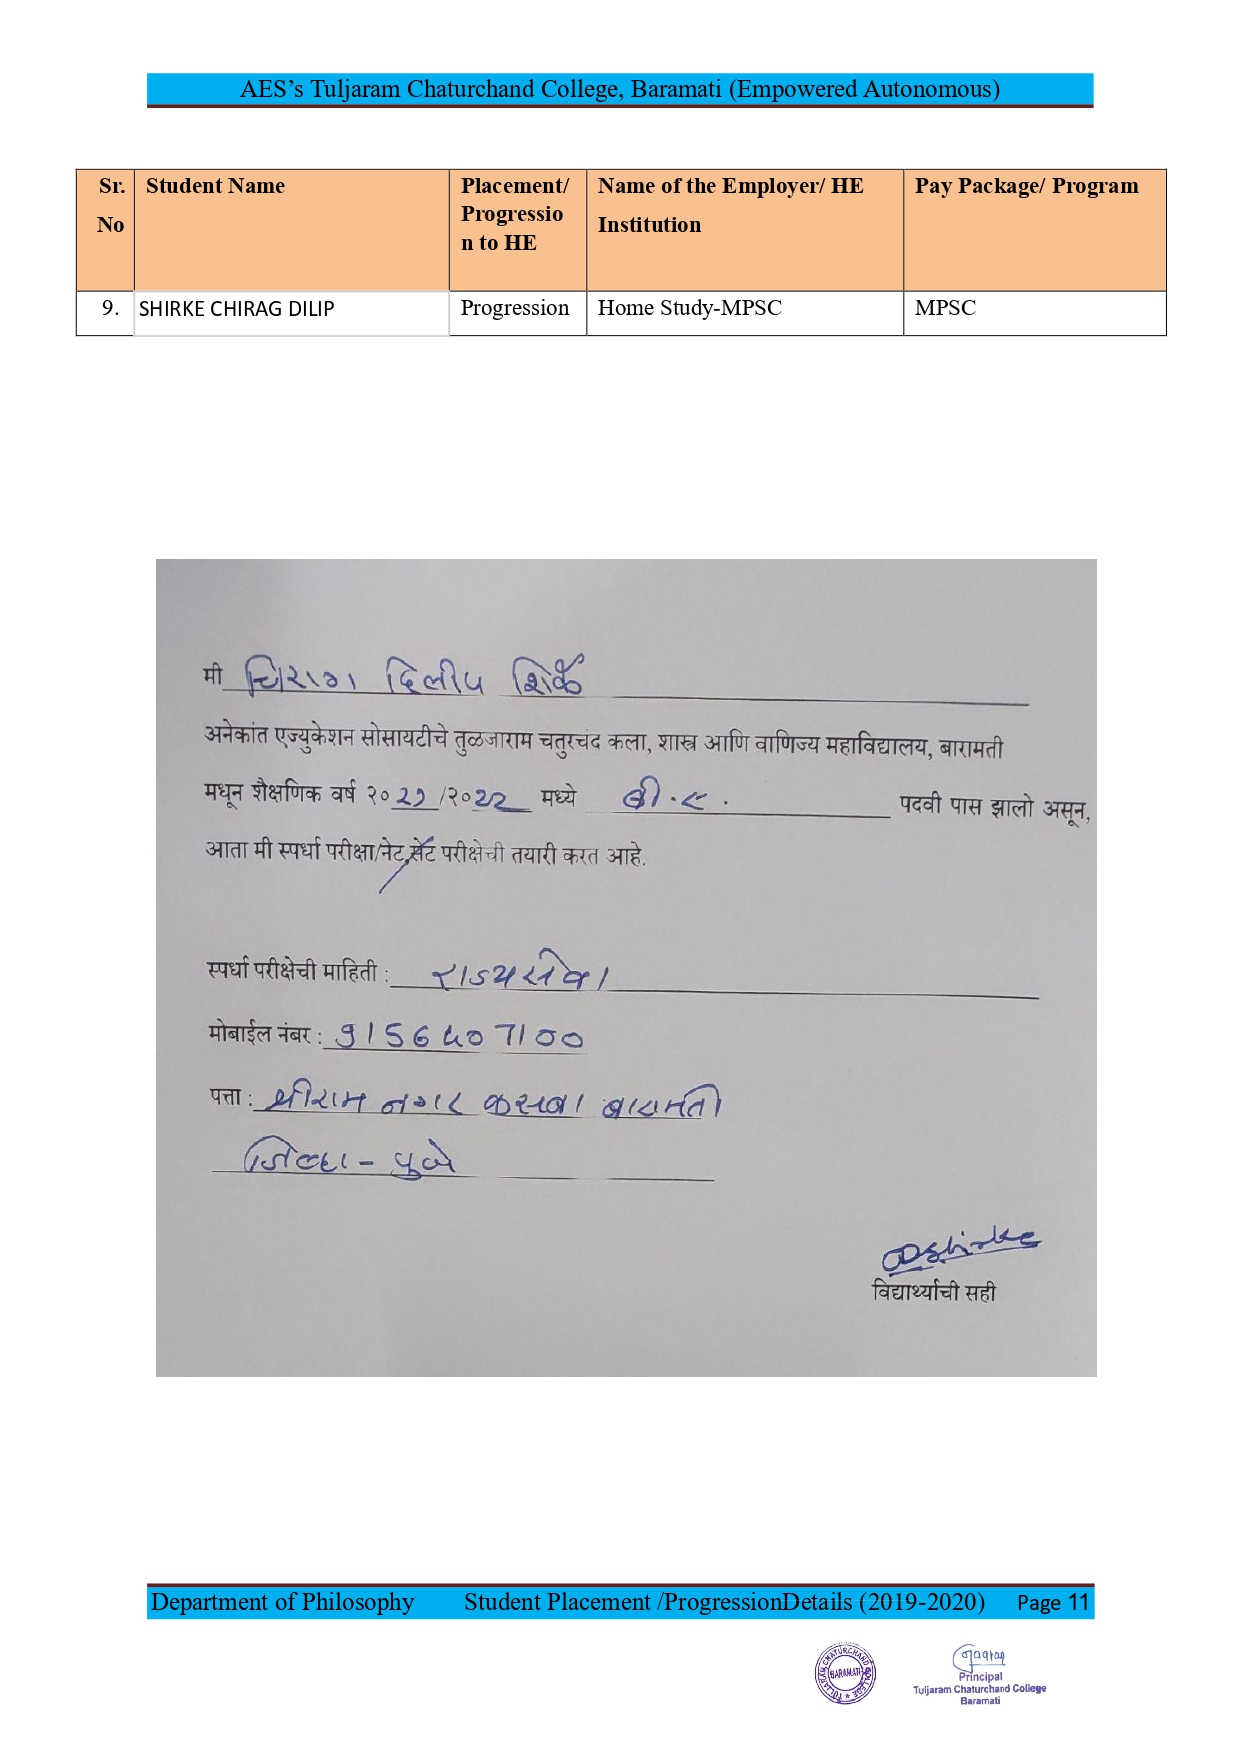 AES’s Tuljaram Chaturchand College, Baramati (Empowered Autonomous)
Sr. No Student Name Placement/ Progressio n to HE Name of the Employer/ HE Institution Pay Package/ Program
9. SHIRKE CHIRAG DILIP Progression Home Study-MPSC MPSC
मी चिराग दिलीप शिर्के
अनेकांत एज्युकेशन सोसायटीचे तुळजाराम चतुरचंद कला, शास्त्र आणि वाणिज्य महाविद्यालय, बारामती
मधून शैक्षणिक वर्ष २०२१/२०२२ मध्ये बी.ए. पदवी पास झालो असून,
आता मी स्पर्धा परीक्षा/नेट,सेट परीक्षेची तयारी करत आहे.
स्पर्धा परीक्षेची माहिती : राज्यसेवा
मोबाईल नंबर : 9156407100
पत्ता : श्रीराम नगर कसबा बारामती
जिल्हा - पुणे
Dshirke
विद्यार्थ्याची सही
Department of Philosophy Student Placement /ProgressionDetails (2019-2020) Page 11
TULJARAM CHATURCHAND COLLEGE
BARAMATI
Principal
Tuljaram Chaturchand College
Baramati